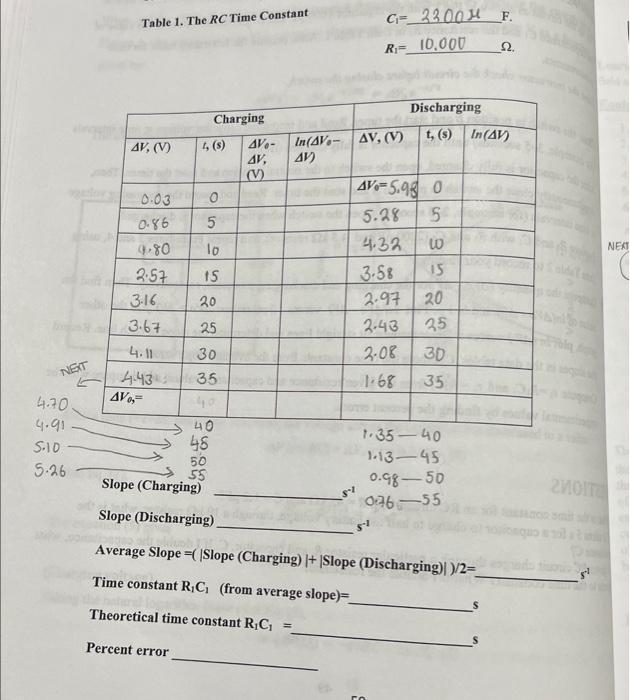 Table 1. The RC Time Constant
C₁= 3300 µ F.
R₁= 10,000 Ω.
Charging Discharging
ΔV, (V) t, (s) ΔV₀-ΔV, (V) ln(ΔV₀-ΔV) ΔV, (V) t, (s) ln(ΔV)
0.03 0 ΔV₀= 5.98 0
0.86 5 5.28 5
1.80 10 4.32 10
2.57 15 3.58 15
3.16 20 2.97 20
3.67 25 2.43 25
4.11 30 2.08 30
NEXT 4.43 35 1.68 35
ΔV₀,= 40
4.70 40 1.35 — 40
4.91 45 1.13 — 45
5.10 50 0.98 — 50
5.26 55 0.76 — 55
Slope (Charging) s⁻¹
Slope (Discharging) s⁻¹
Average Slope =( |Slope (Charging) |+ |Slope (Discharging)| )/2= s⁻¹
Time constant R₁C₁ (from average slope)= s
Theoretical time constant R₁C₁ = s
Percent error